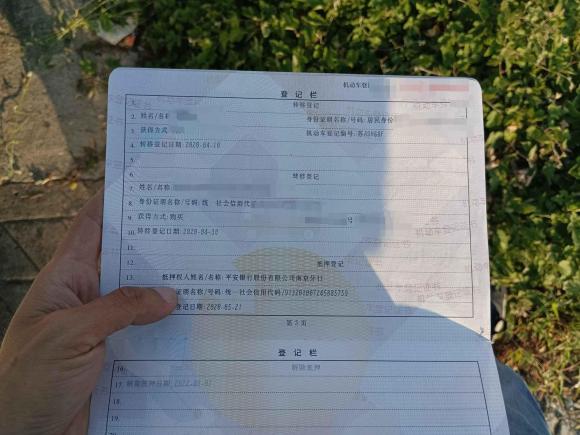 机动车登
登记栏
1. 转移登记
2. 姓名/名称 身份证明名称/号码:居民身份
3. 获得方式 机动车登记编号:苏A0H68F
4. 转移登记日期:2020-04-10
5.
6. 转移登记
7. 姓名/名称
8. 身份证明名称/号码:统一社会信用代
9. 获得方式:购买 号
10. 转移登记日期:2020-04-30
11.
12. 抵押登记
13. 抵押权人姓名/名称:平安银行股份有限公司南京分行
证明名称/号码:统一社会信用代码/
登记日期:2020-05-21
第3页
登记栏
16. 解除抵押
17. 解除抵押日期:
18.
19.